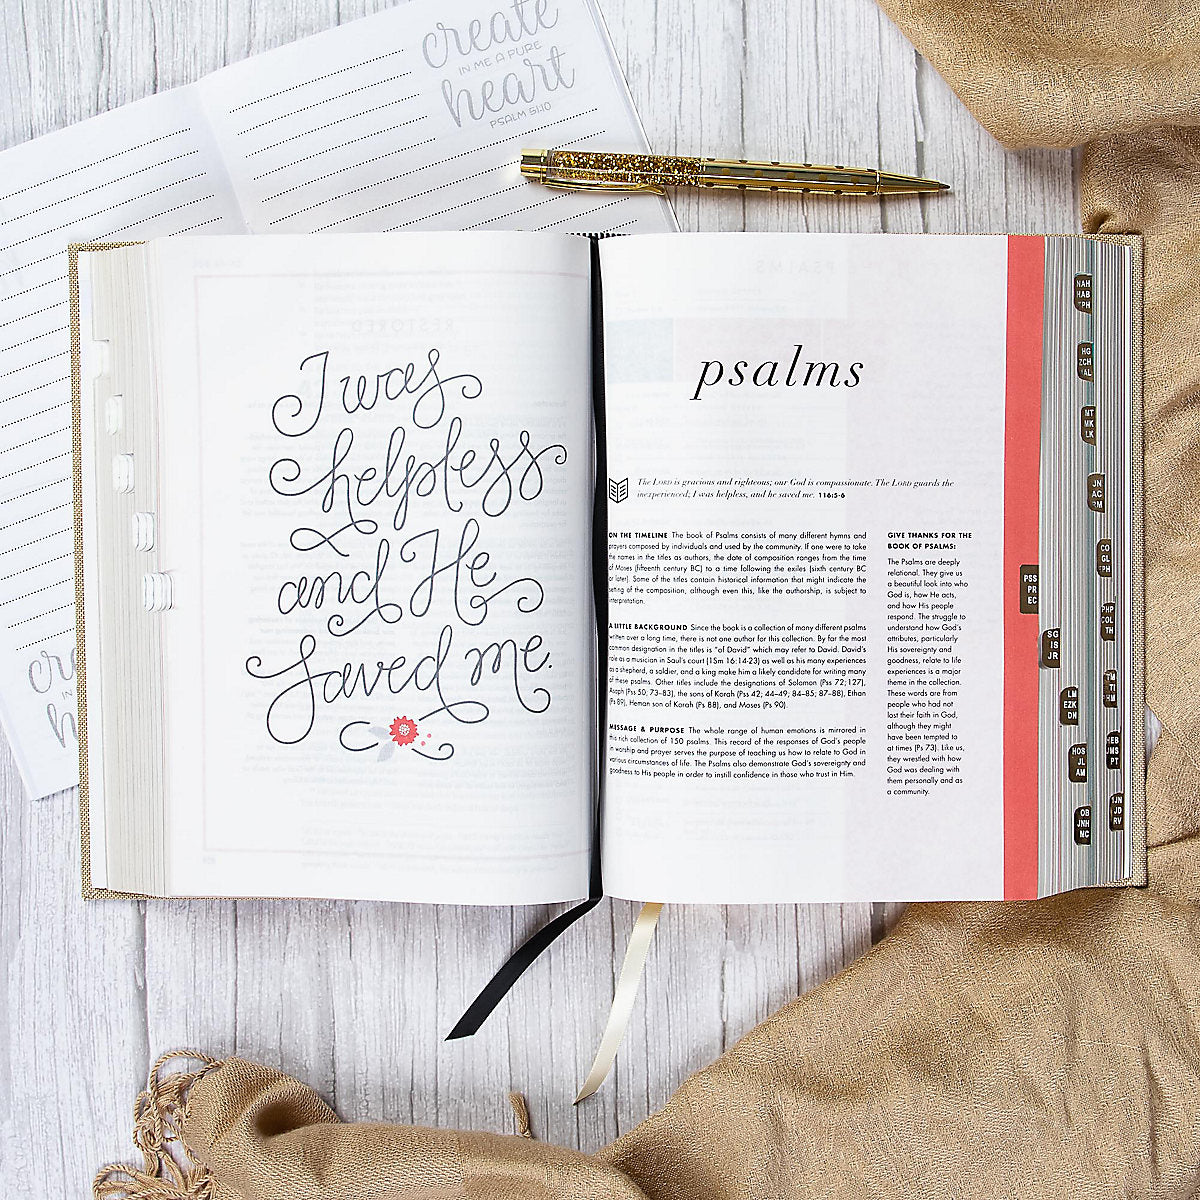 create
IN ME A PURE
heart
PSALM 51:10
I was
helpless
and He
saved me.
psalms
The LORD is gracious and righteous; our God is compassionate. The LORD guards the
inexperienced; I was helpless, and he saved me. 116:5-6
ON THE TIMELINE The book of Psalms consists of many different hymns and
prayers composed by individuals and used by the community. If one were to take
the names in the titles as authors, the date of composition ranges from the time
of Moses (fifteenth century BC) to a time following the exiles (sixth century BC
or later). Some of the titles contain historical information that might indicate the
setting of the composition, although even this, like the authorship, is subject to
interpretation.
A LITTLE BACKGROUND Since the book is a collection of many different psalms
written over a long time, there is not one author for this collection. By far the most
common designation in the titles is "of David" which may refer to David. David's
role as a musician in Saul's court (1Sm 16:14-23) as well as his many experiences
as a shepherd, a soldier, and a king make him a likely candidate for writing many
of these psalms. Other titles include the designations of Solomon (Pss 72; 127),
Asaph (Pss 50; 73–83), the sons of Korah (Pss 42; 44–49; 84–85; 87–88), Ethan
(Ps 89), Heman son of Korah (Ps 88), and Moses (Ps 90).
MESSAGE & PURPOSE The whole range of human emotions is mirrored in
this rich collection of 150 psalms. This record of the responses of God's people
in worship and prayer serves the purpose of teaching us how to relate to God in
various circumstances of life. The Psalms also demonstrate God's sovereignty and
goodness to His people in order to instill confidence in those who trust in Him.
GIVE THANKS FOR THE
BOOK OF PSALMS:
The Psalms are deeply
relational. They give us
a beautiful look into who
God is, how He acts,
and how His people
respond. The struggle to
understand how God's
attributes, particularly
His sovereignty and
goodness, relate to life
experiences is a major
theme in the collection.
These words are from
people who had not
lost their faith in God,
although they might
have been tempted to
at times (Ps 73). Like us,
they wrestled with how
God was dealing with
them personally and as
a community.
NAH
HAB
ZPH
HG
ZCH
MAL
MT
MK
LK
JN
AC
RM
CO
GL
EPH
PSS
PR
EC
PHP
COL
TH
SG
IS
JR
TM
TI
HM
LM
EZK
DN
HEB
JMS
PT
HOS
JL
AM
1JN
JD
RV
OB
JNH
MC